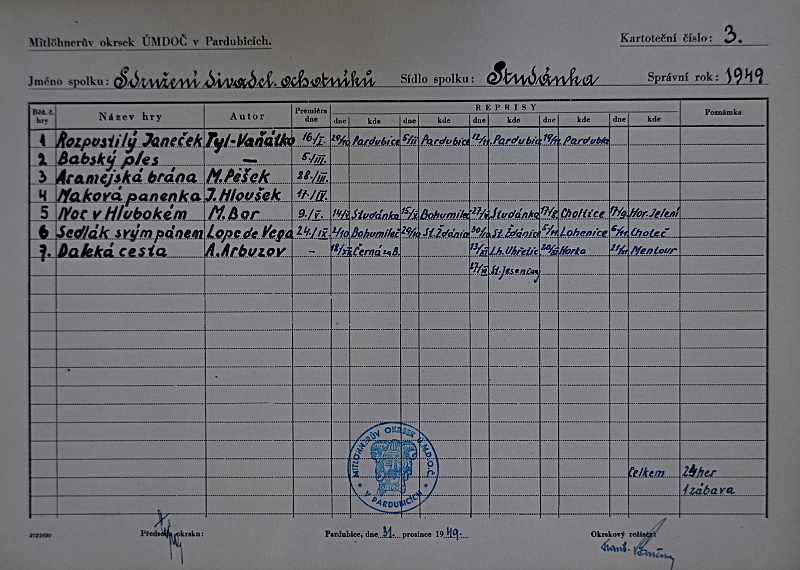 Mitlöhnerův okrsek ÚMDOČ v Pardubicích. Kartoteční číslo: 3.
Jméno spolku: Sdružení divadel. ochotníků Sídlo spolku: Studánka Správní rok: 1949
Běž. č. hry Název hry Autor Premiéra dne REPRISY Poznámka
dne kde dne kde dne kde dne kde dne kde
1 Rozpustilý Janeček Tyl-Vaňátko 16/I. Pardubice 5/II Pardubice Pardubice Pardubice
2 Babský ples — 5/III.
3 Aramejská brána M. Pěšek 28/III.
4 Maková panenka J. Hloušek 17/IV.
5 Noc v Hlubokém M. Bor 9./V. Studánka Bohumileč Studánka Choltice Hor. Jelení
6 Sedlák svým pánem Lope de Vega 24./IX. 2/10 Bohumileč 29/10 St. Ždánice 30/10 St. Ždánice Lohenice Choteč
7. Daleká cesta A. Arbuzov – Černá za B. Lh. Uřetic. Horka Mentour
St. Jesenčany
Celkem 24 her
1 zábava
MITLÖHNERŮV OKRSEK Ú.M.D.O.Č. V PARDUBICÍCH
Předseda okrsku: Pardubice, dne 31. prosince 1949. Okrskový režisér: